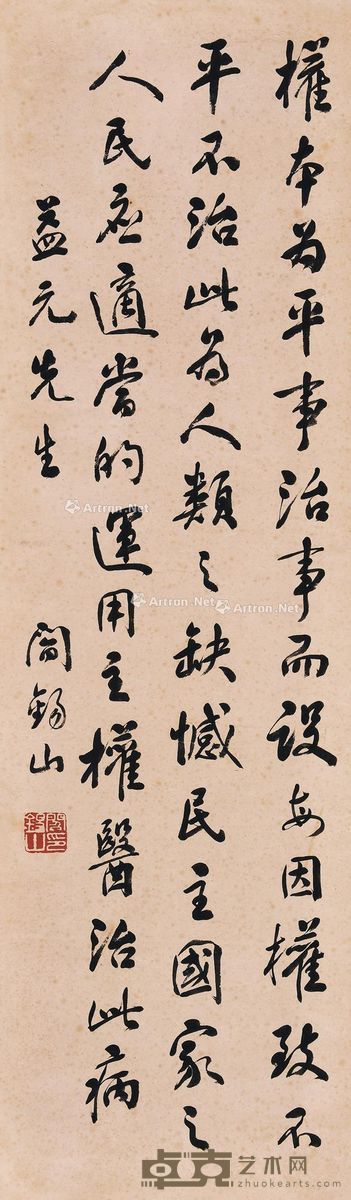 權本為平事治事而設每因權致不
平不治此為人類之缺憾民主國家之
人民應適當的運用主權醫治此病
益元先生
閻錫山
閻錫山印
Artron.Net
Artron.Net
Artron.Net
卓克艺术网
zhuokearts.com